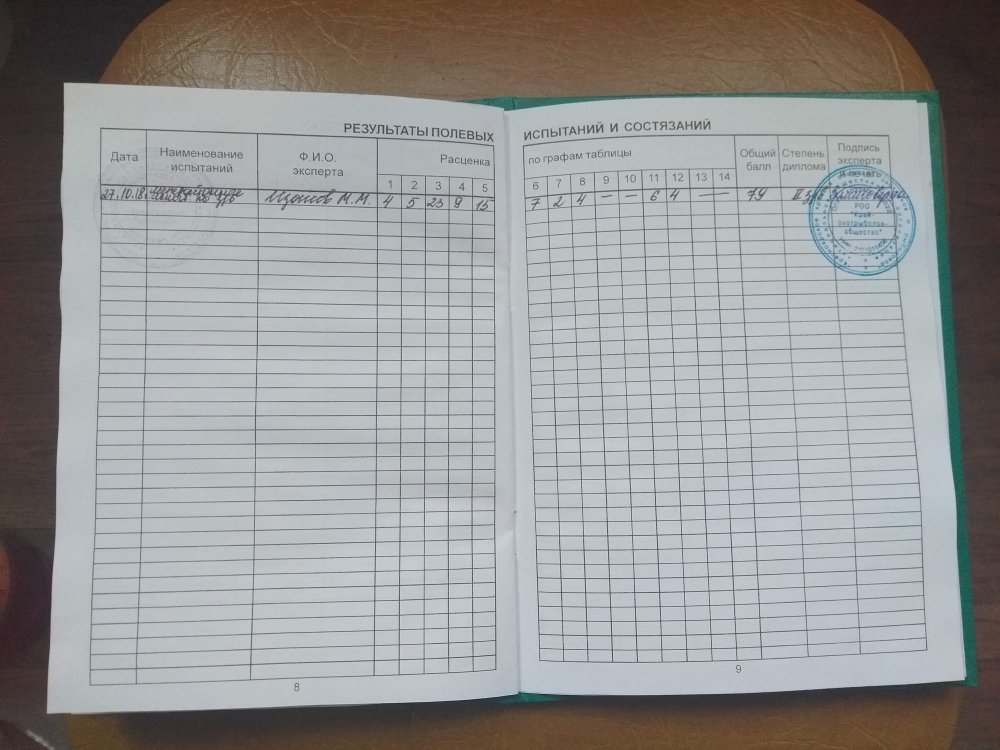 РЕЗУЛЬТАТЫ ПОЛЕВЫХ
Дата
Наименование
испытаний
Ф.И.О.
эксперта
Расценка
1 2 3 4 5
27.10.18. М.М. 4 5 23 9 15
8
ИСПЫТАНИЙ И СОСТЯЗАНИЙ
по графам таблицы
Общий
балл
Степень
диплома
Подпись
эксперта
и печать
6 7 8 9 10 11 12 13 14
7 2 4 — — 6 4 — —
РОО
"Край-
охотрыболов-
общество"
9